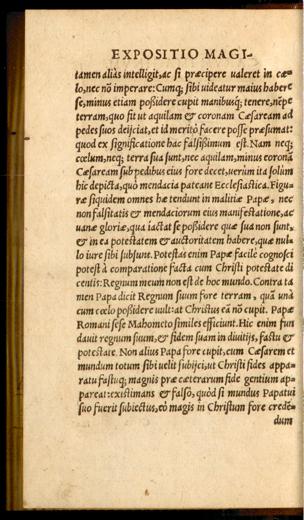 EXPOSITIO MAGI-
tamen aliàs intelligit, ac si præcipere valeret in cæ-
lo, nec nō imperare: Cumq; sibi videatur maius habere
se, minus etiam poßidere cupit manibusq; tenere, nēpe
terram, quo fit ut aquilam & coronam Cæsaream ad
pedes suos deijciat, et id meritò facere posse præsumat:
quod ex significatione hac falsißimum est. Nam neq;
cœlum, neq; terra sua sunt, nec aquilam, minus coronā
Cæsaream sub pedibus eius fore decet, verùm ita solùm
hic depicta, quò mendacia pateant Ecclesiastica. Figu-
ræ siquidem omnes hæ tendunt in malitiæ Papæ, nec
non falsitatis & mendaciorum eius manifestatione, ac
vanæ gloriæ, qua iactat se poßidere quæ sua non sunt,
& in ea potestatem & auctoritatem habere, quæ nul-
lo iure sibi subsunt. Potestas enim Papæ facilè cognosci
potest à comparatione facta cum Christi potestate di-
centis: Regnum meum non est de hoc mundo. Contra ta
men Papa dicit Regnum suum fore terram, quā unà
cum cœlo poßidere vult: at Christus eā nō cupit. Papæ
Romani sese Mahometo similes efficiunt. Hic enim fun
dauit regnum suum, & fidem suam in diuitijs, fastu &
potestate. Non alius Papa fore cupit, eum Cæsarem et
mundum totum sibi velit subijci, ut Christi fides appa-
ratu fastuq; magnis præ cæterarum fide gentium ap-
pareat: existimans & falsò, quòd si mundus Papatui
suo fuerit subiectus, eò magis in Christum fore credē-
dum